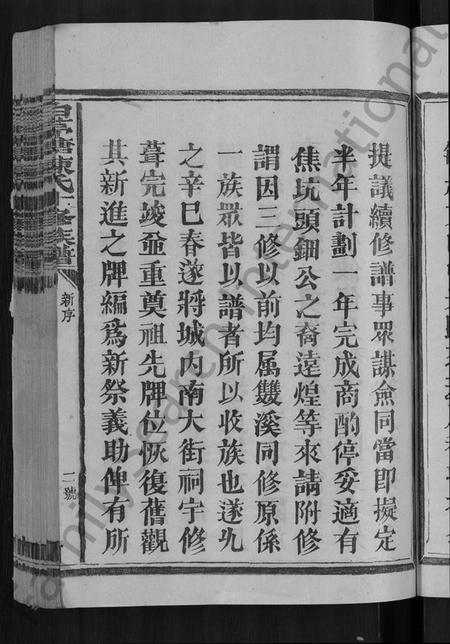 提議續修譜事眾謀僉同當即擬定
半年計劃一年完成商酌停妥適有
焦坑頭鈿公之裔遠煌等來請附修
謂因三修以前均属雙溪同修原係
一族眾皆以譜者所以收族也遂允
之辛巳春遂將城内南大街祠宇修
葺完竣並重奠祖先牌位恢復舊觀
其新進之牌編爲新祭義助俾有所
陳氏 修族譜
新序
二號
FamilySearch International